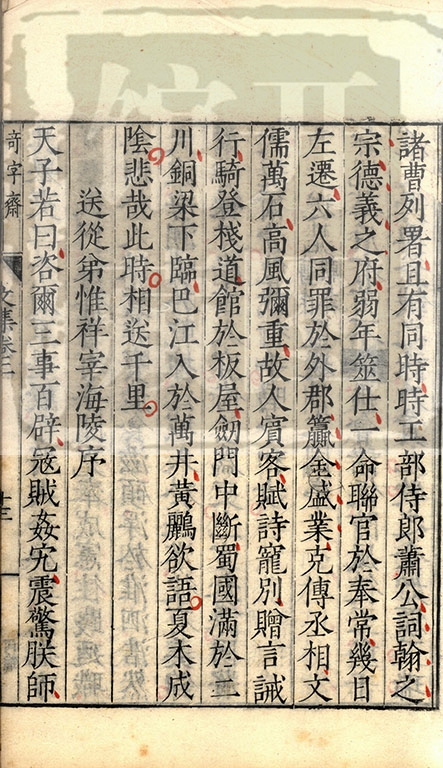 諸曹列署且有同時時工部侍郎蕭公詞翰之
宗德義之府弱年筮仕一命聯官於奉常幾日
左遷六人同罪於外郡籯金盛業克傳丞相文
儒萬石高風彌重故人賓客賦詩寵別贈言誡
行騎登棧道館於板屋劒門中斷蜀國滿於二
川銅梁下臨巴江入於萬井黃鸝欲語夏木成
陰悲哉此時相送千里
送從弟惟祥宰海陵序
天子若曰咨爾三事百辟寇賊姦宄震驚朕師
奇字齋
文集卷二
十三